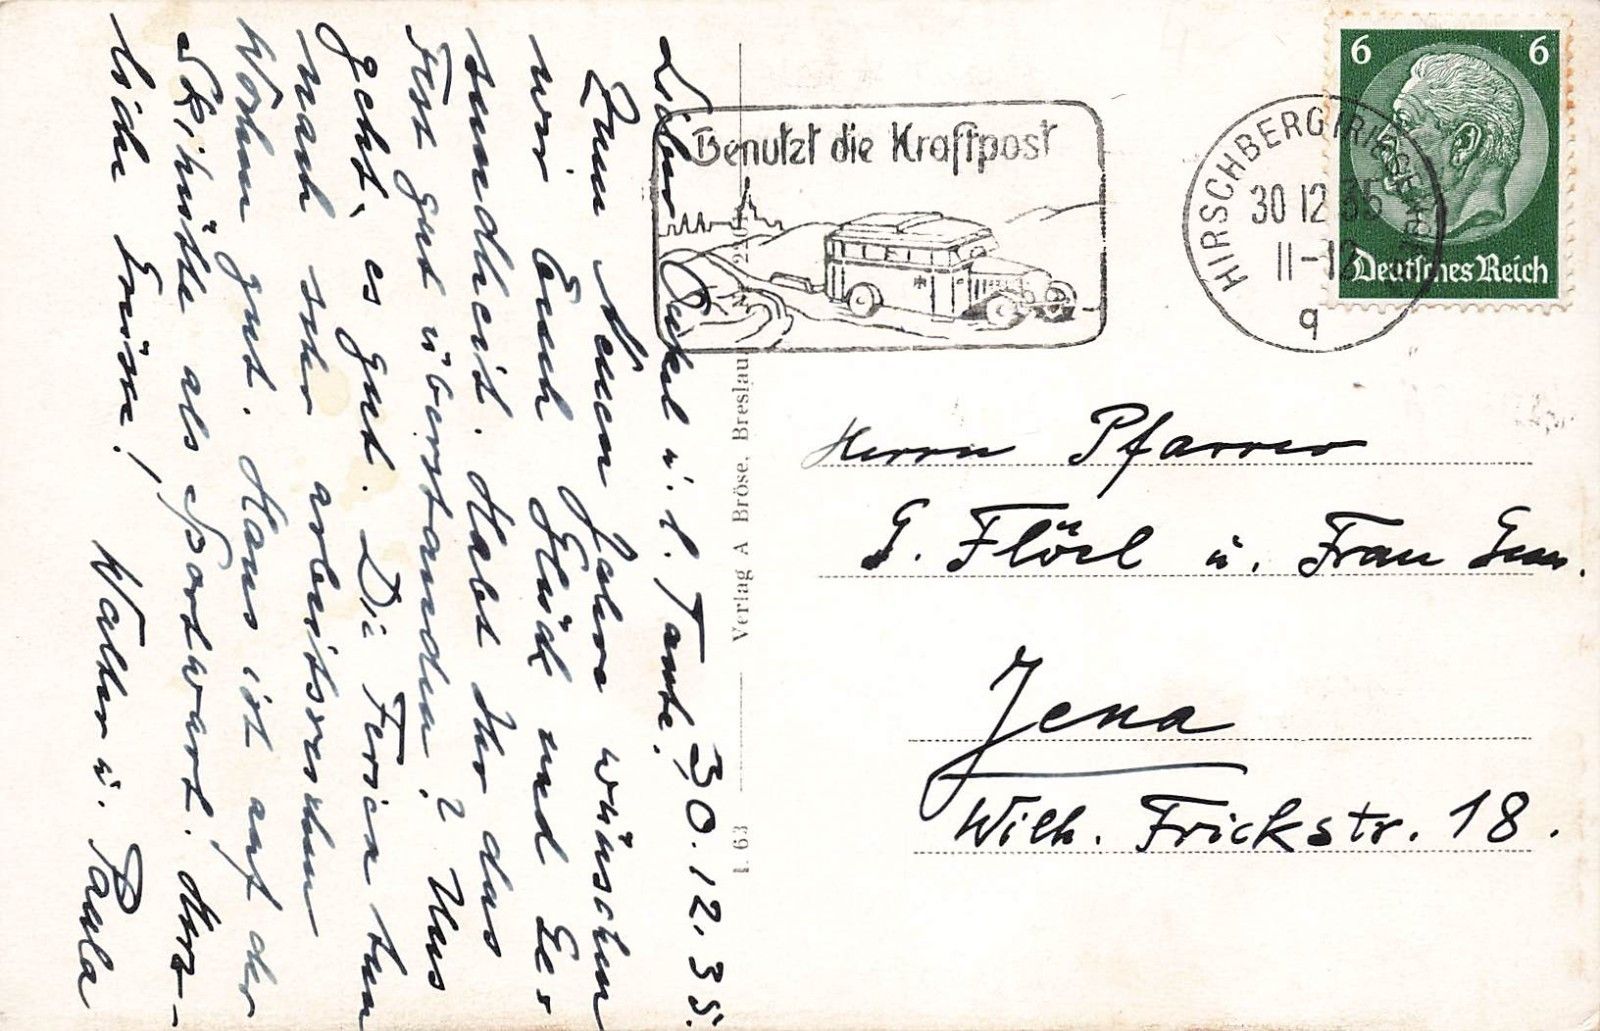 30.12.35.
Lieber Onkel u. l. Tante,
Zum Neuen Jahre wünschen
wir Euch Glück und Ge-
sundheit. Habt Ihr das
Fest gut überstanden? Uns
geht es gut. Die Ferien tun
nach sehr arbeitsreichen
Wochen gut. Hans ist auf der
Skihütte als Sportwart. Herz-
liche Grüsse!
Walter u. Paula
L 63
Verlag A Bröse, Breslau
Benutzt die Kraftpost
HIRSCHBERG (RIESENGEB)
30 12 35
11-12
q
6 6
Deutsches Reich
Herrn Pfarrer
G. Flöel u. Frau Gem.
Jena
Wilh. Frickstr. 18.